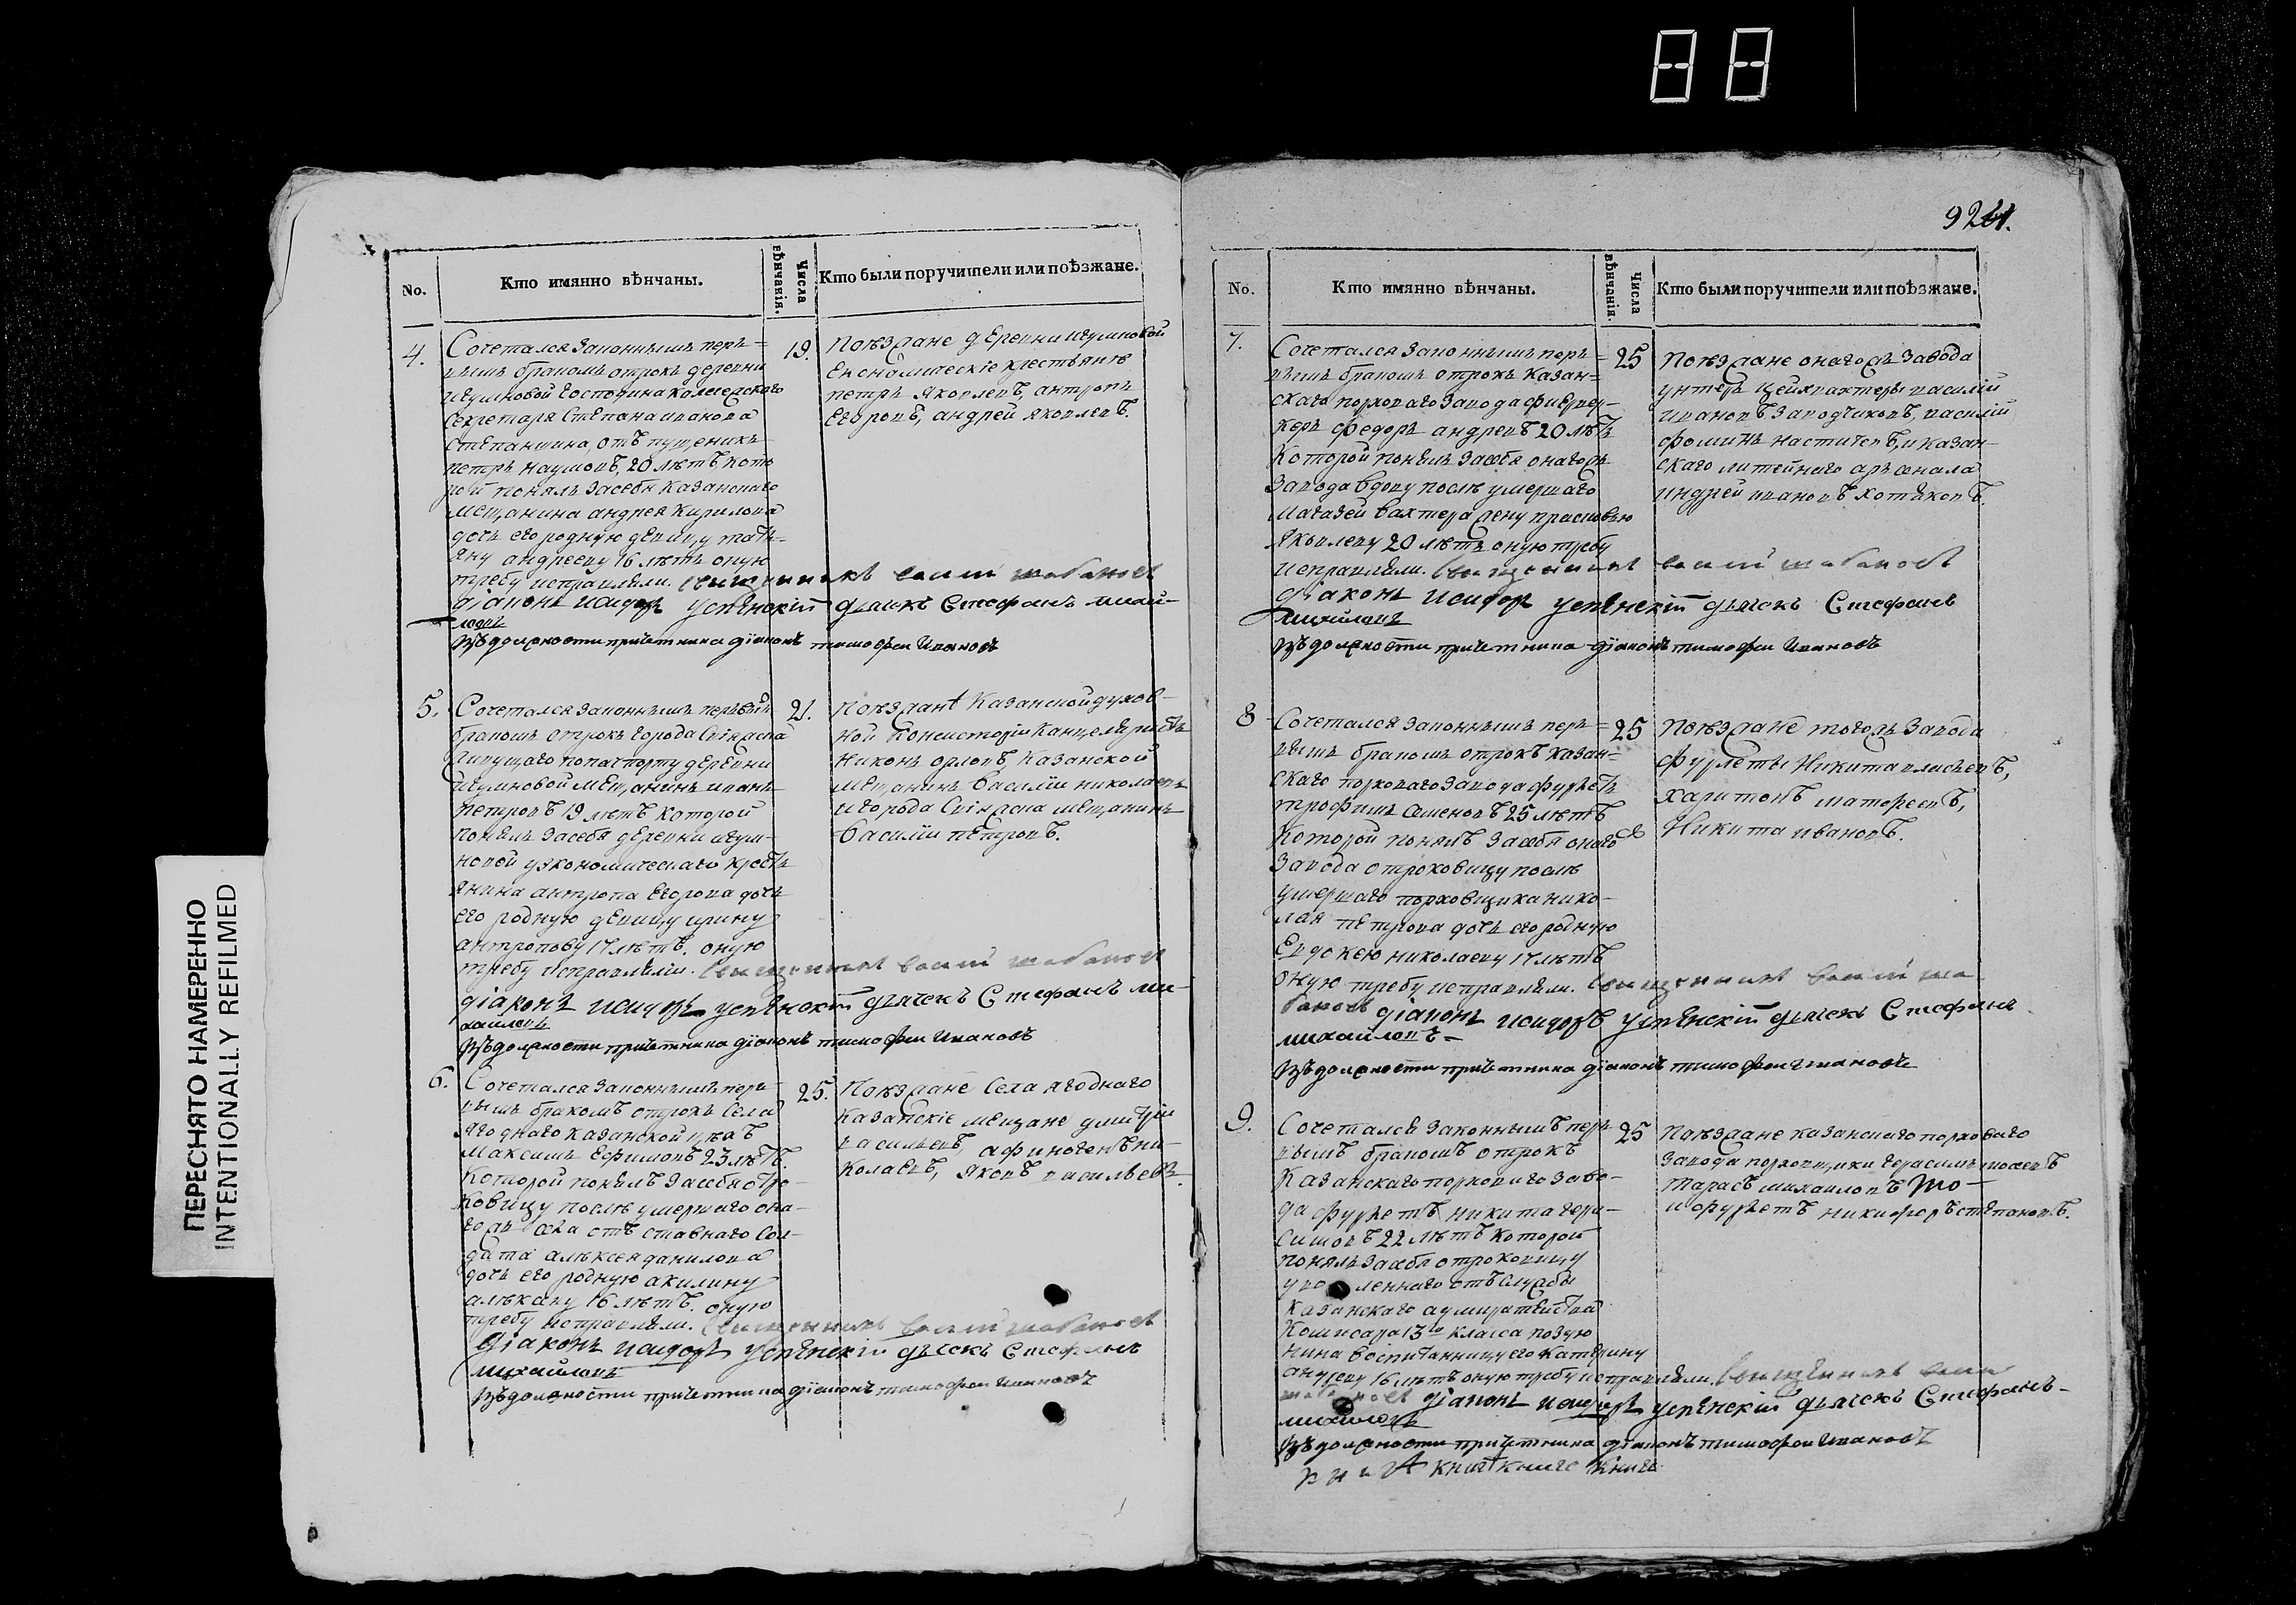 924.
No.
Кто имянно вѣнчаны.
Числа вѣнчанія.
Кто были поручители или поѣзжане.
4.
Сочетался законнымъ пер-
вымъ бракомъ отрокъ деревни
Игумновой Господина колежскаго
Секретаря Степана иванова
Степанщина, отъ пущеникъ
петръ наумовъ, 20 лѣтъ кото
рой понялъ засебя казанскаго
мещанина андрея Кирилова
дочь его родную девицу тать-
яну андрееву 16 лѣтъ оную
требу исправляли. Священникъ
діаконъ исидоръ успенскій дьячекъ Стефанъ михай-
ловъ
Въ должности причетника діаконъ тимофеи Ивановъ
19.
Поѣзжане деревни Игумновой
Економическіе крестьянѣ
петръ Яковлевъ, антропъ
Егоровъ, андрей яковлевъ.
5.
Сочетался законнымъ первымъ
бракомъ отрокъ города Свіяжска
живущаго попачпорту деревни
Игумновой мещанинъ иванъ
петровъ 19 лѣтъ которой
понялъ засебя деревни игум-
новой уэкономическаго кресть
янина антропа Егорова дочь
его родную девицу ирину
антропову 17 лѣтъ. оную
требу исправляли. Священникъ
діаконъ исидоръ успенскій дьячекъ Стефанъ ми-
хайловъ
Въ должности причетника діаконъ тимофеи Ивановъ
21.
Поѣзжанѣ Казанской духов-
ной Консисторіи Канцеляристъ
Никонъ орловъ, Казанской
мещанинъ Василіи николаевъ
и города Свіяжска мещанинъ
Василіи петровъ.
6.
Сочетался законнымъ пер-
вымъ бракомъ отрокъ Села
Ягоднаго казанской
Максимъ Ефимовъ 23 лѣтъ.
которой понялъ засебя отро-
ковицу послѣ умершаго она-
гожъ села отъ ставнаго Сол-
дата алексея данилова
дочь его родную акилину
алексеву 16 лѣтъ. оную
требу исправляли. Священникъ
діаконъ исидоръ успенскій дьячекъ Стефанъ
михайловъ
Въ должности причетника діаконъ тимофеи Ивановъ
25.
Поѣзжане Села Ягоднаго
казанскіе мещане дмитріи
васильевъ, афиногенъ ни-
колаевъ, Яковъ васильевъ.
No.
Кто имянно вѣнчаны.
Числа вѣнчанія.
Кто были поручители или поѣзжане.
7.
Сочетался законнымъ пер-
вымъ бракомъ отрокъ Казан-
скаго пороховаго завода феервер-
керъ федоръ андреевъ 20 лѣтъ
которой понялъ засебя онагожъ
завода вдову послѣ умершаго
Магазей вахтера жену прасковью
Яковлеву 20 лѣтъ оную требу
исправляли. Священникъ
діаконъ исидоръ успенскій дьячекъ Стефанъ
михайловъ
Въ должности причетника діаконъ тимофеи Ивановъ
25
Поѣзжане онагожъ завода
унтеръ цейхвахтеры василіи
ивановъ заводчиковъ, василіи
фоминъ и казан-
скаго литейнаго арсенала
андрей ивановъ хотяковъ.
8
Сочетался законнымъ пер-
вымъ бракомъ отрокъ казан-
скаго пороховаго завода фурлетъ
трофимъ Семеновъ 25 лѣтъ
которой понялъ засебя онаго
завода отроковицу послѣ
умершаго пороховщика нико-
лая петрова дочь его родную
Евдокею николаеву 17 лѣтъ
оную требу исправляли. Священникъ
діаконъ исидоръ Успенскій дьячекъ Стефанъ
михайловъ
Въ должности причетника діаконъ тимофеи Ивановъ
25
Поѣзжане тогожъ завода
фурлеты Никита
харитонъ матфеевъ,
Никита ивановъ.
9.
Сочетался законнымъ пер-
вымъ бракомъ отрокъ
Казанскаго пороховаго заво-
да фурлетъ никита гера-
симовъ 22 лѣтъ которой
понялъ засебя отроковицу
леннаго отъ службы
казанскаго адмиралтейства
Комисара 13го класса
воспитанницу его катерину
андрееву 16 лѣтъ оную требу исправляли. Священникъ
діаконъ исидоръ успенскій дьячекъ Стефанъ
михайловъ
Въ должности причетника діаконъ тимофеи Ивановъ
25
Поѣзжане казанскаго пороховаго
завода пороховщики герасимъ
тарасъ михаиловъ
и фурлетъ никифоръ степановъ.
ПЕРЕСНЯТО НАМЕРЕННО
INTENTIONALLY REFILMED